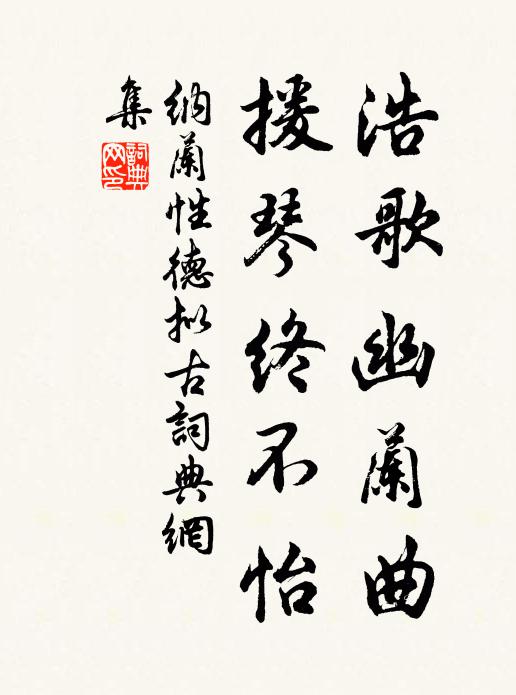 浩歌幽蘭曲
援琴終不怡
納蘭性德拟古詞典網
集
詞典
网印